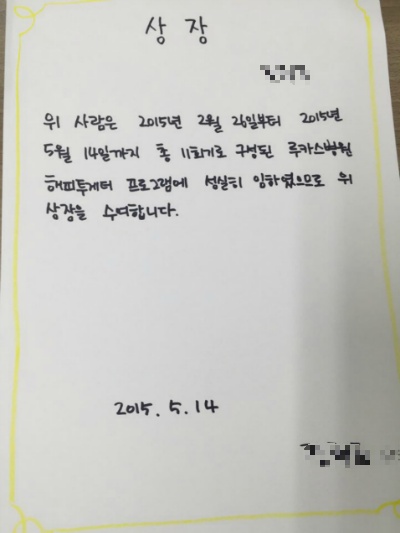 상 장
위 사람은 2015년 2월 26일부터 2015년
5월 14일까지 총 11회기로 구성된 루카스병원
해피투게더 프로그램에 성실히 임하였으므로 위
상장을 수여합니다.
2015. 5. 14